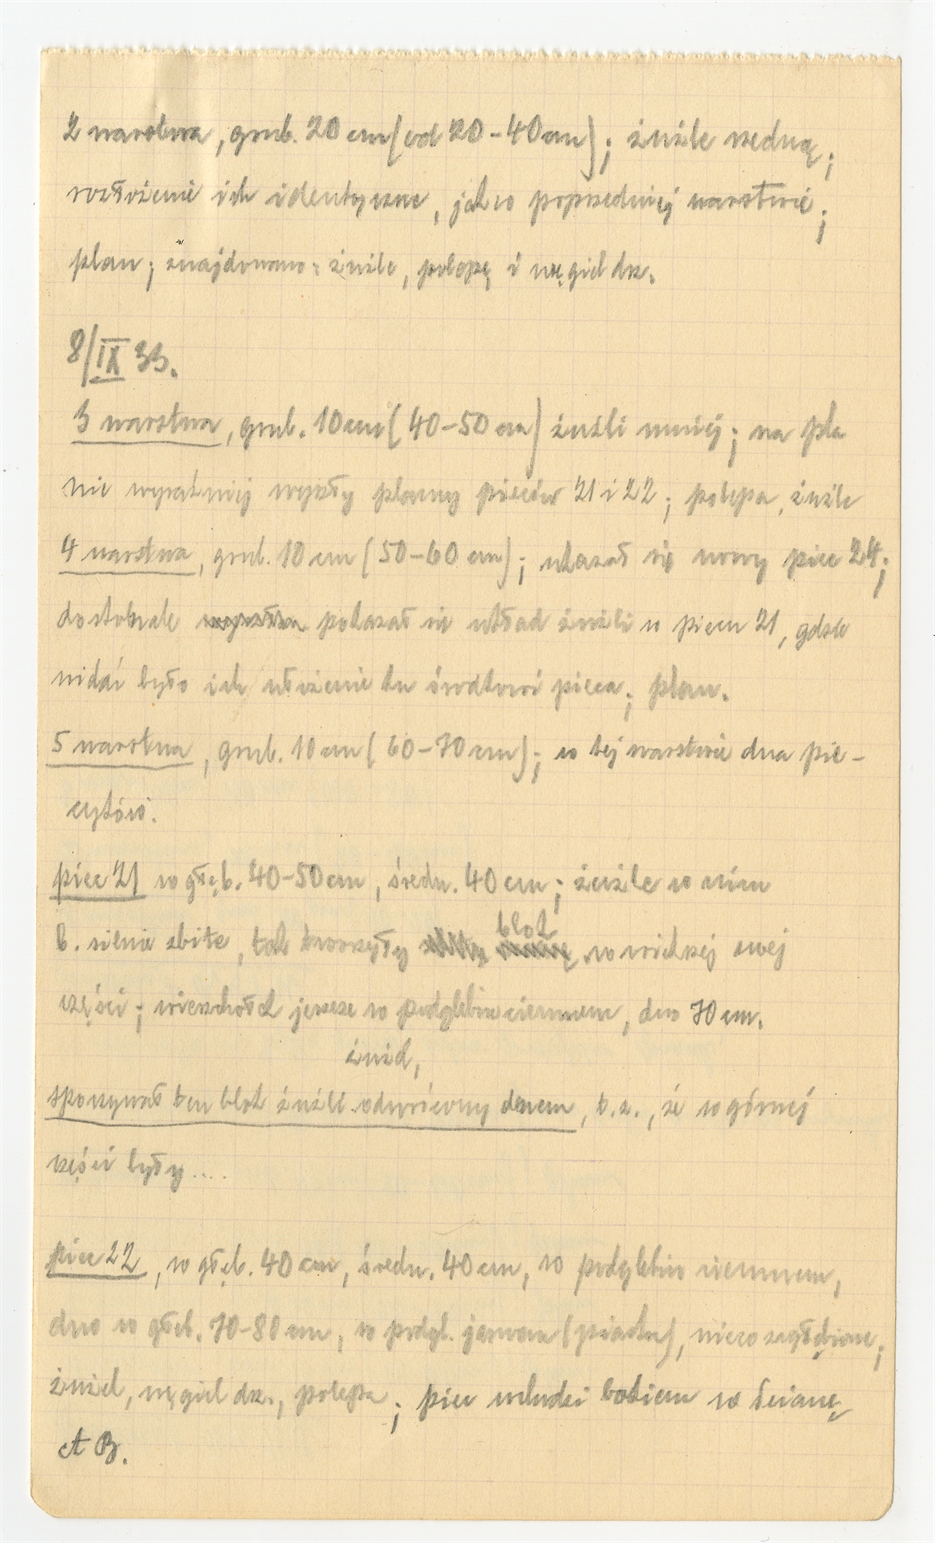 2 warstwa, grub. 20 cm (od 20-40 cm); żużle rzedną;
rozłożenie ich identyczne, jak w poprzedniej warstwie;
plan; znajdowano: żużle, polepę i węgiel drz.
8/IX 33.
3 warstwa, grub. 10 cm (40-50 cm) żużli mniej; na pla
nie wyraźniej wyszły plamy pieców 21 i 22; polepa, żużle
4 warstwa, grub. 10 cm (50-60 cm); ukazał się nowy piec 24;
doskonale pokazał się układ żużli w piecu 21, gdzie
widać było ich ułożenie ku środkowi pieca; plan.
5 warstwa, grub. 10 cm (60-70 cm); w tej warstwie dna pie-
cysków.
piec 21 w głęb. 40-50 cm, średn. 40 cm; żużle w nim
b. silnie zbite, tak tworzyły blok w większej swej
części; wierzchołek jeszcze w podglebiu ciemnem, dno 70 cm.
żużel,
spoczywał ten blok żużli odwrócony dnem, t.z., że w górnej
części były....
piec 22, w głęb. 40 cm, średn. 40 cm, w podglebiu ciemnem,
dno w głęb. 70-80 cm, w podgl. jasnem (piasku), nieco zagłębione;
żużel, węgiel drz., polepa; piec wchodzi bokiem w ścianę
AB.